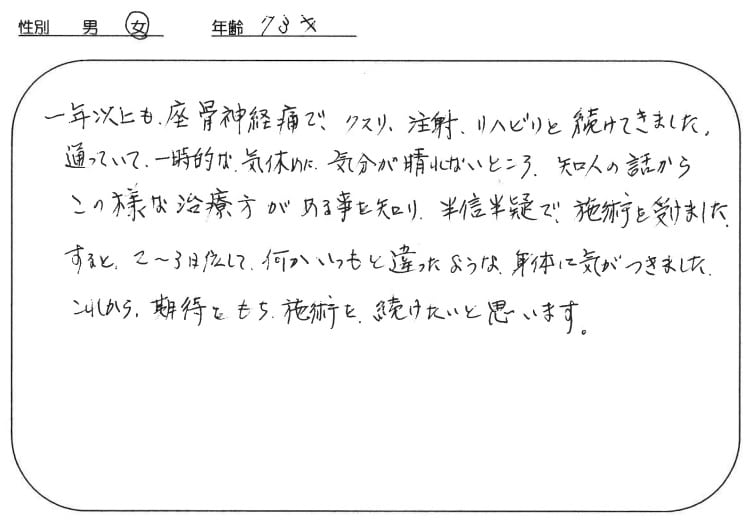 性別 男 女 年齢 73才
一年以上も、座骨神経痛で、クスリ、注射、リハビリと続けてきました。
通っていて、一時的な、気休めに、気分が晴れないところ、知人の話から
この様な治療方がある事を知り、半信半疑で、施術を受けました。
すると、2〜3日位して、何かいつもと違ったような、身体に気がつきました。
これから、期待をもち、施術を、続けたいと思います。